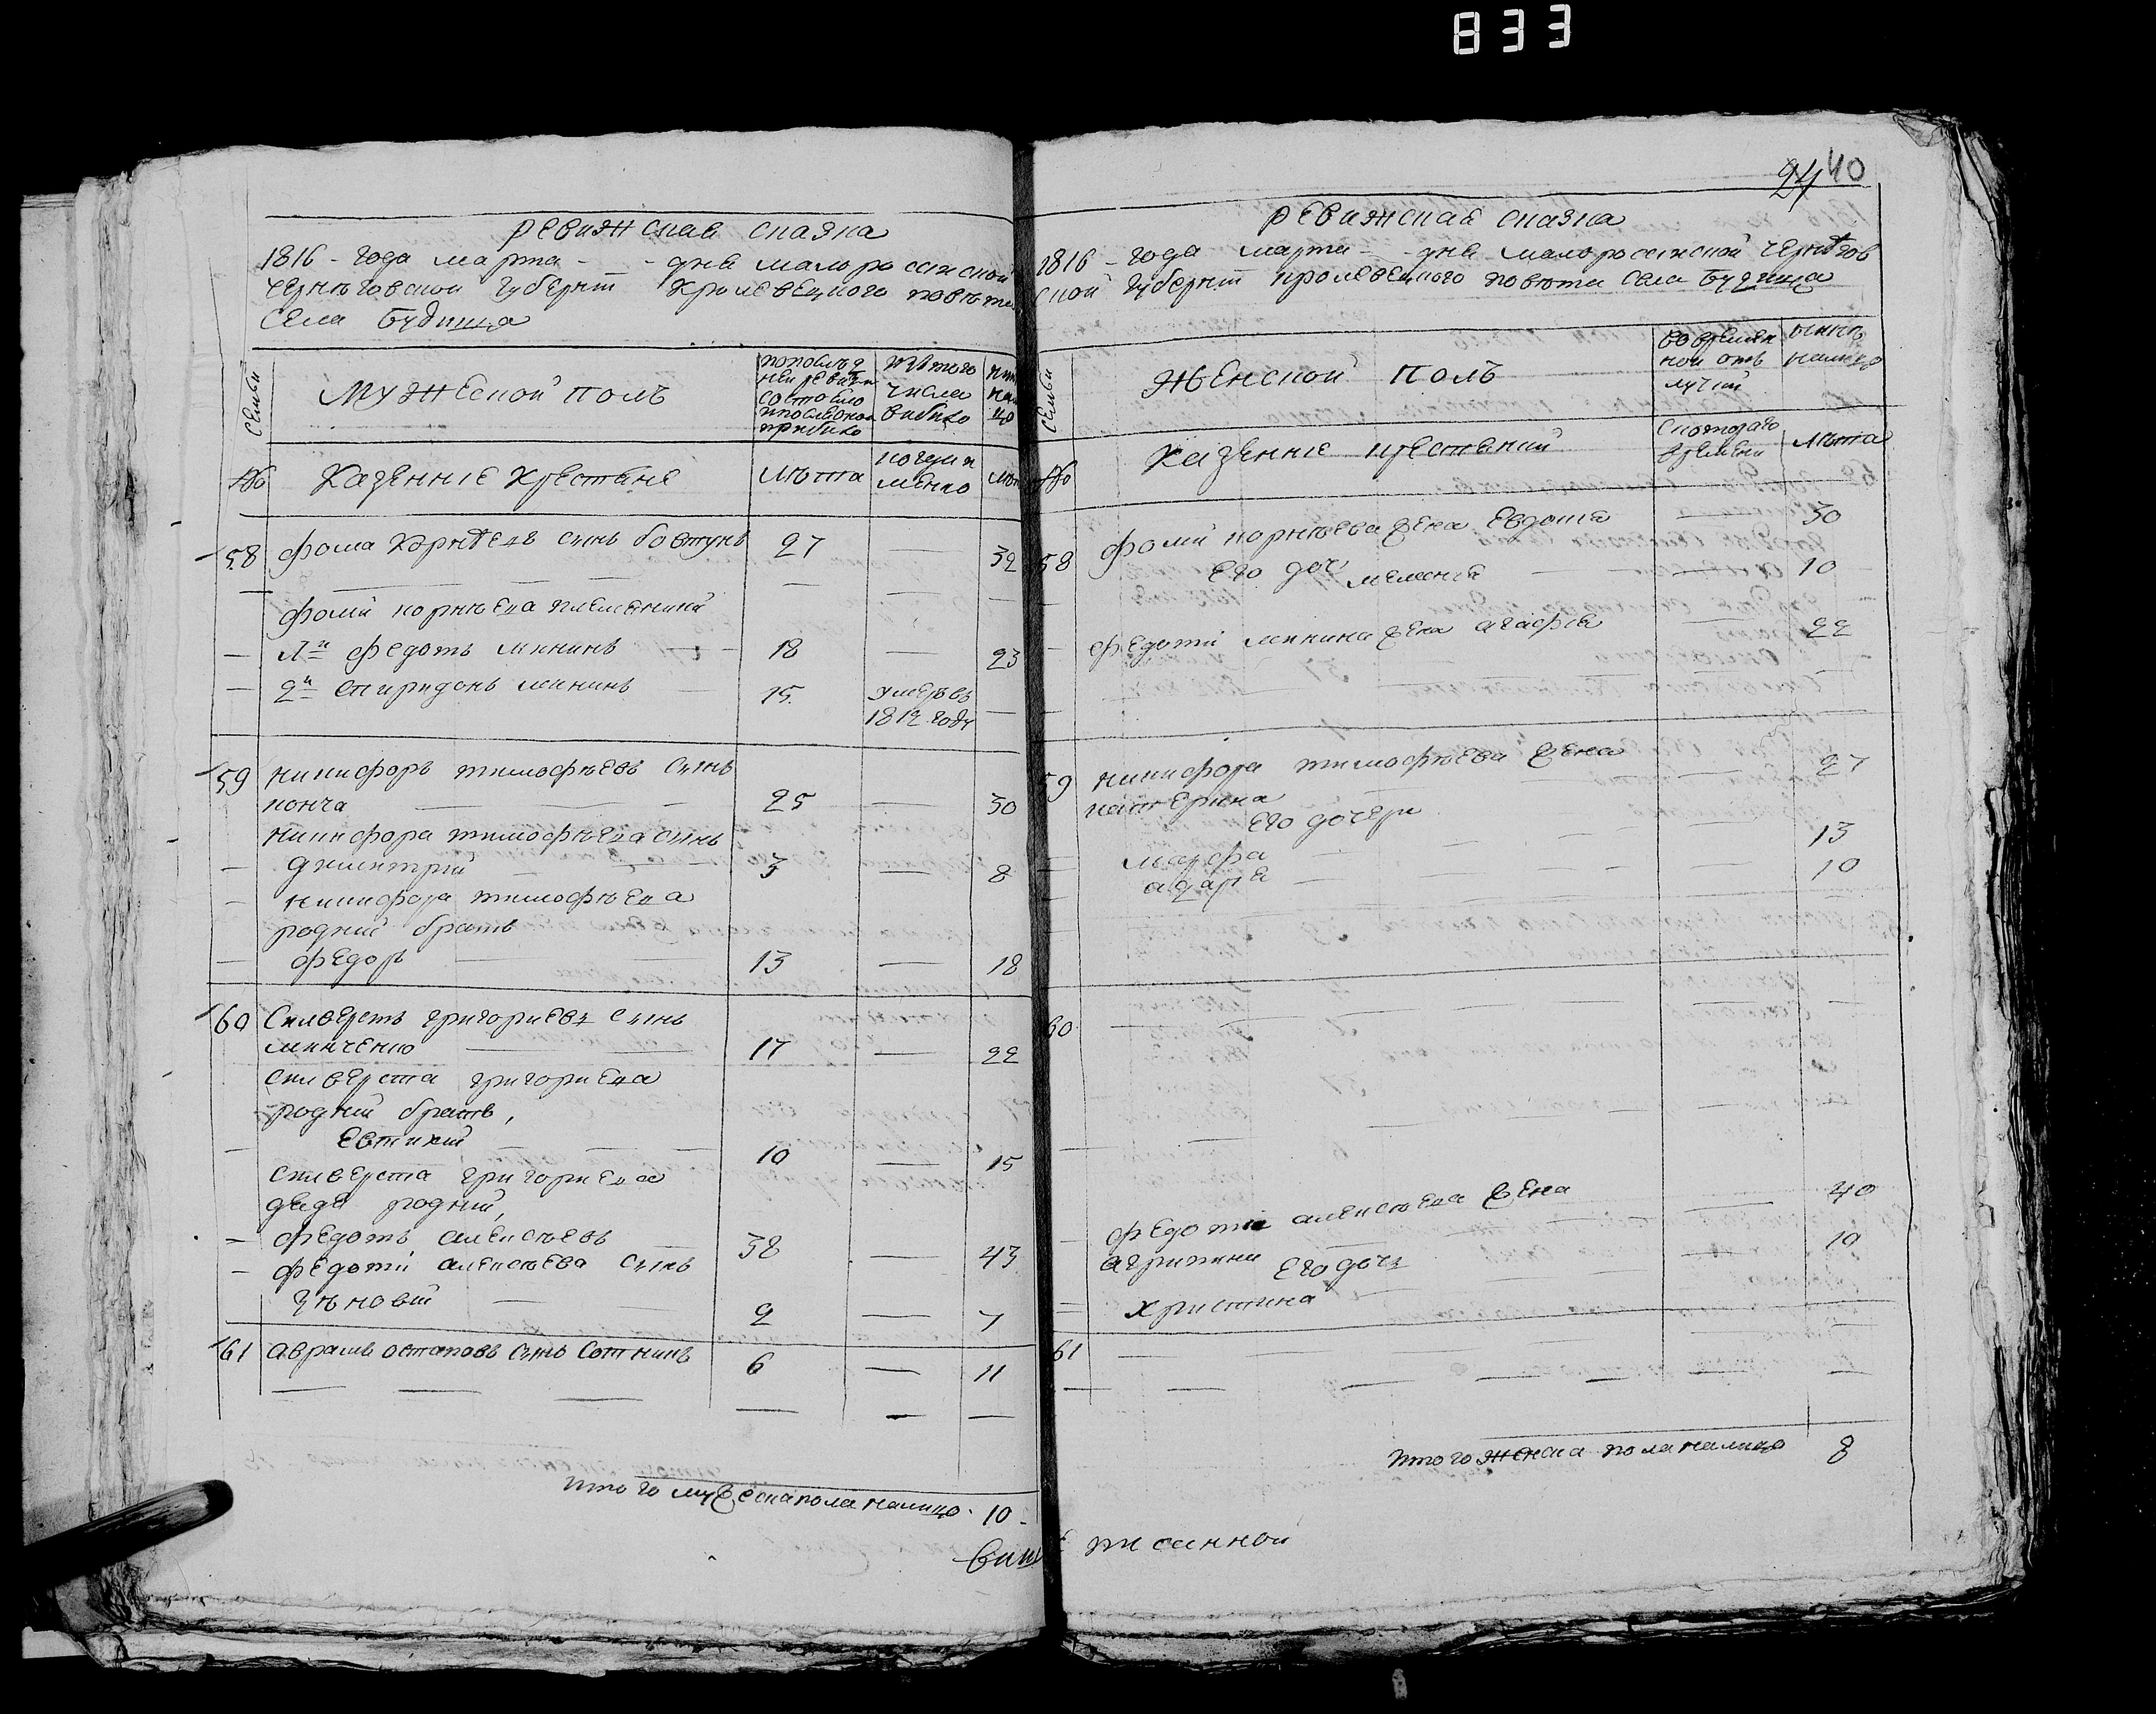 833
ревижская сказка
1816 - года марта - - дня малоросейской
черниговской губернии кролевецкого повета
села будища
семьи
мужеской полъ
по последней ревизии состояло и после оной прибыло
из того числа выбыло
№
казенние крестяне
лета
когда именно
58 фома корнеевъ синъ бовтунъ 27 — 32
фоми корнеева племенники
1й федотъ мининъ 18 — 23
2й спиридонъ мининъ 15 умерь въ
1812 году
59 никифоръ тимофеевъ синъ
конча 25 — 30
никифора тимофеева синъ
дмитрий 3 — 8
никифора тимофеева
родний братъ
федоръ 13 — 18
60 силверстъ григориевъ синъ
минченко 17 — 22
силверста григориева
родний братъ,
евтихий 10 — 15
силверста григориева
дядя родний,
федотъ алексеевъ 38 — 43
федота алексеева синъ
зеновий 2 — 7
61 аврамъ остаповъ синъ сотникъ 6 — 11
итого мужеска пола налицо 10
24 40
ревижская сказка
1816 - года марта - - дня малоросейской чернигов
ской губернии кролевецкого повета села будища
семьи
женской полъ
во временной отлучки
ныне налицо
№
казенние крестянки
с которого времени
лета
58 фоми корнеева жена евдокия — 30
его доч мелания — 10
федота минина жена агафия 22
59 никифора тимофеева жена
катерина — 27
его дочери
марфа 13
адаря 10
60
федота алексеева жена
агрипина — 40
его дочь
христина 10
61
итого женска пола налицо 8
више писанной